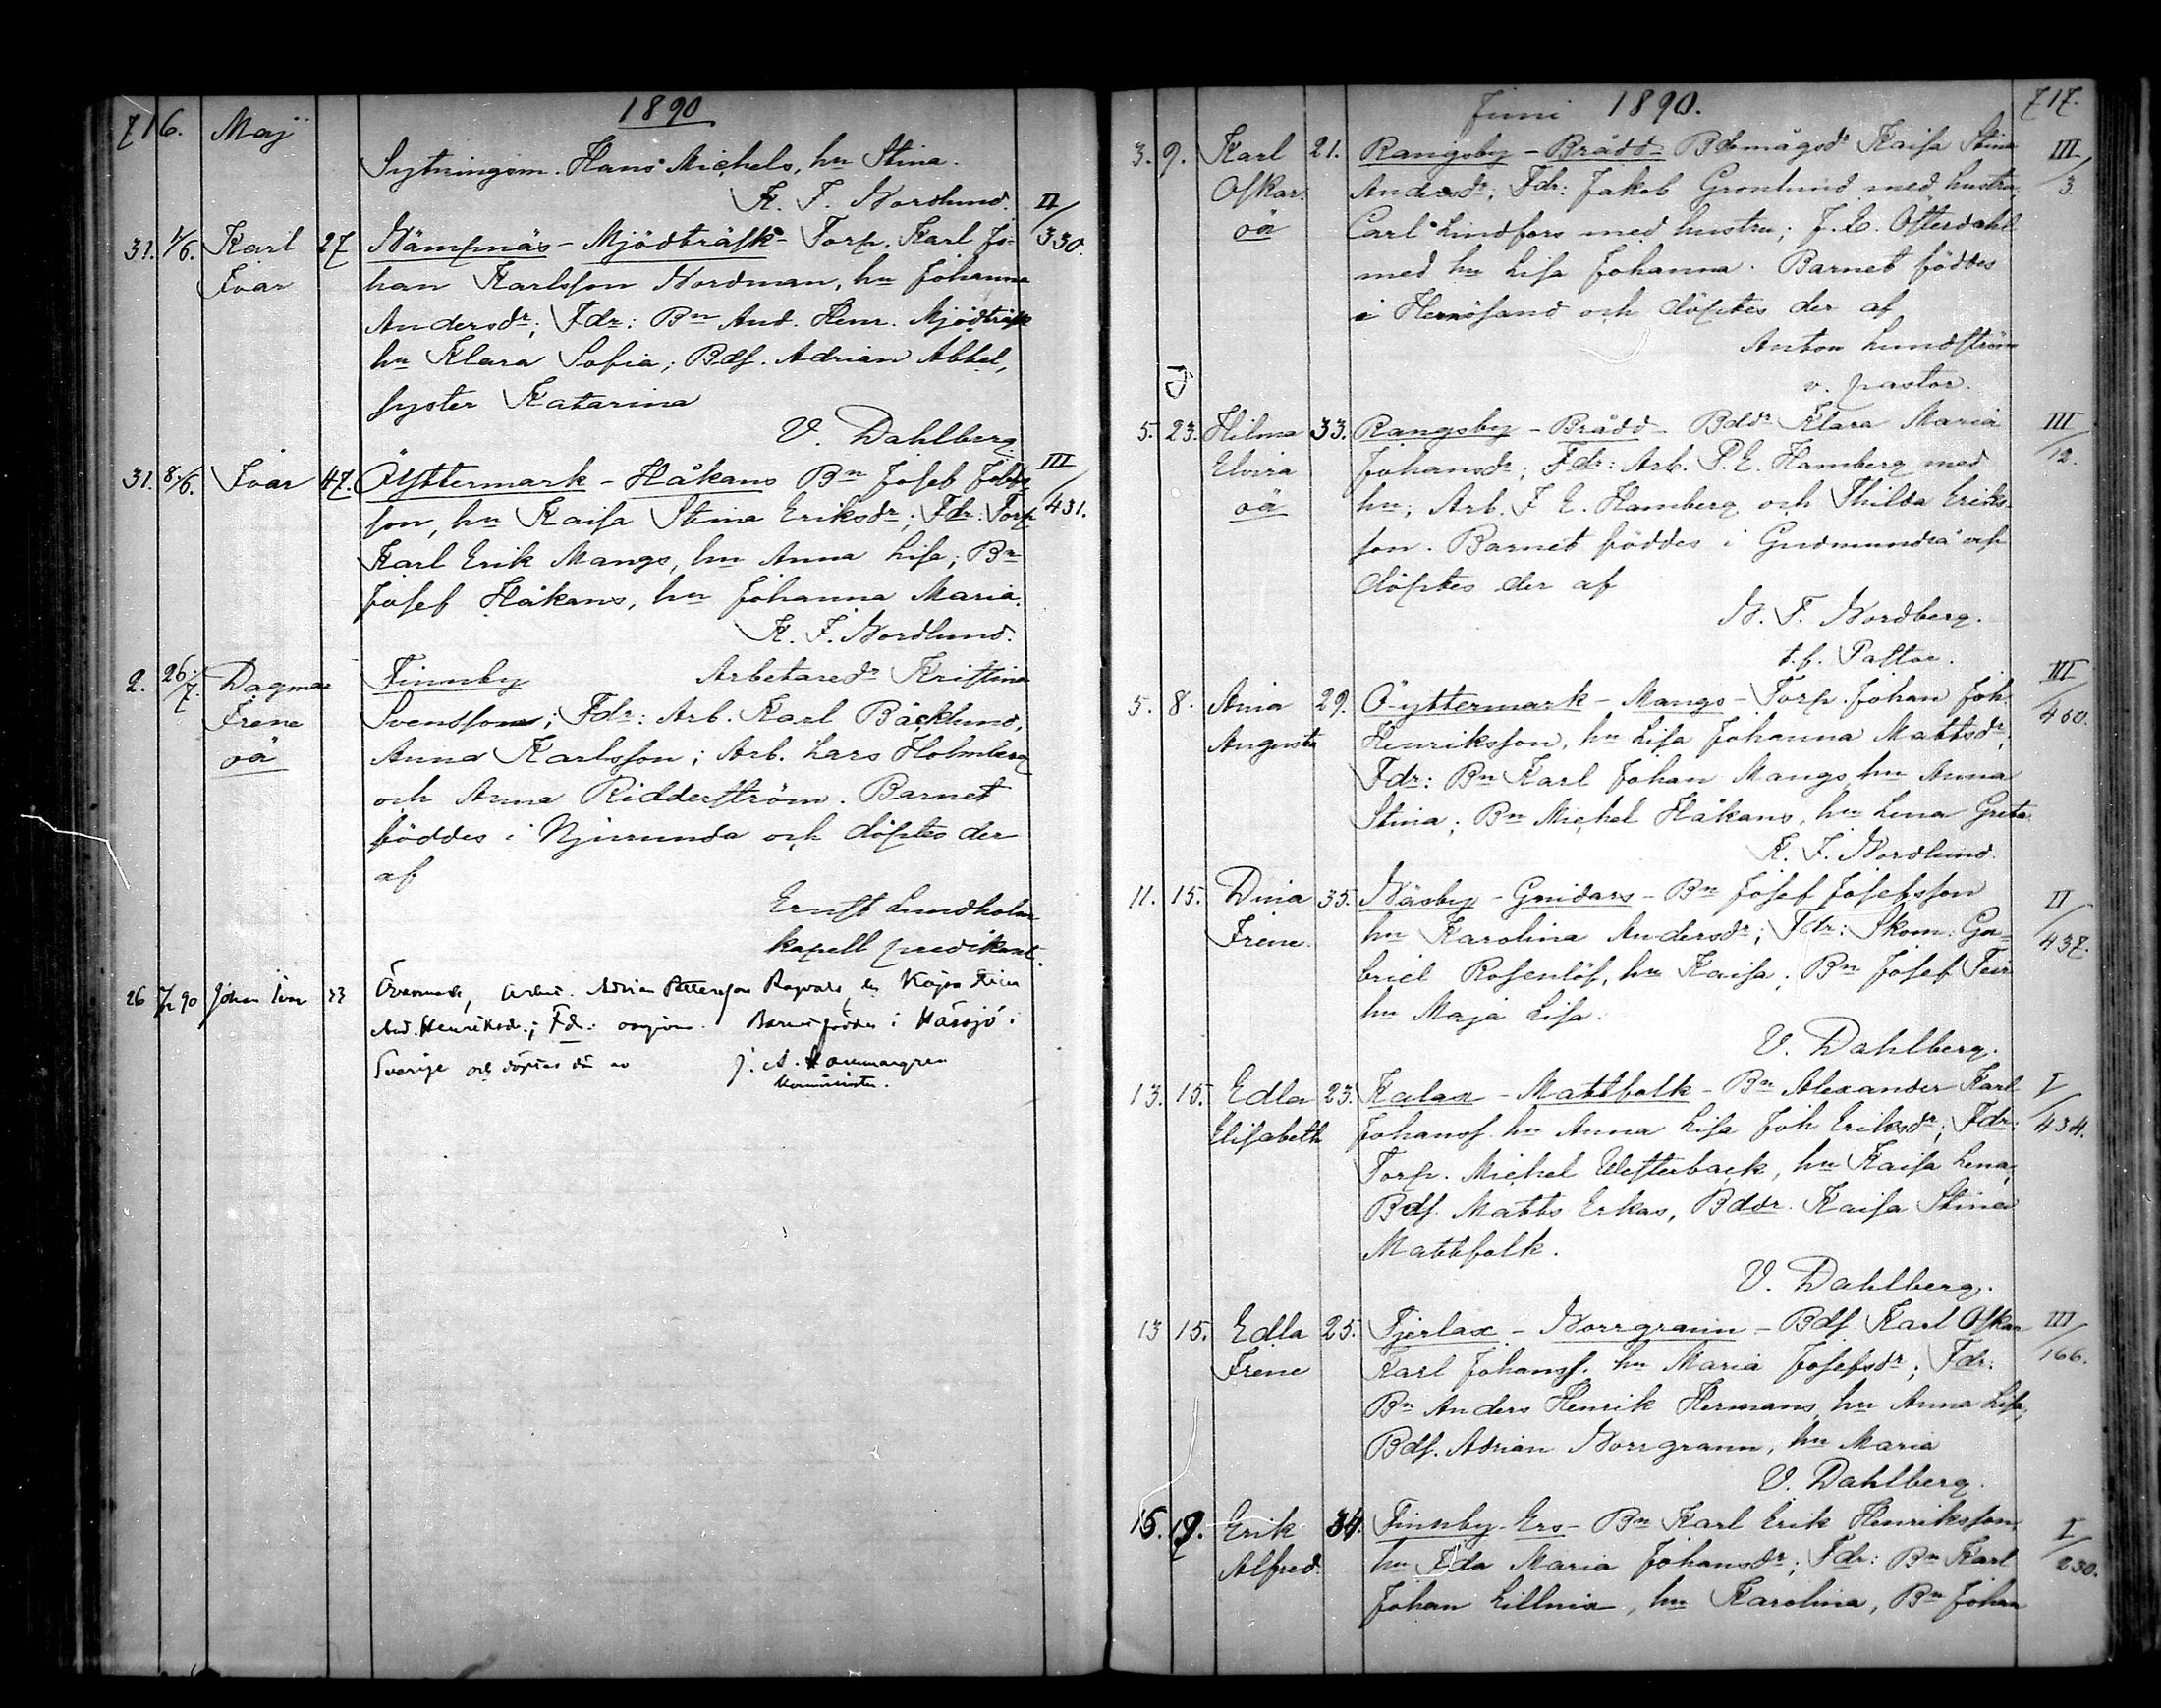 716. Maj 1890
Sytningsm. Hans Michels, hu Stina.
K. F. Nordlund.
31. 1/6. Karl 27 Nämpnäs - Mjödträsk - Torp. Karl Jo- II/330.
Ivar han Karlsson Nordman, hu Johanna
Andersdr; Fdr: Bn And. Henr. Mjödträsk
hu Klara Sofia; Bds. Adrian Abbel,
syster Katarina
V. Dahlberg
31. 8/6. Ivar 47. Öfyttermark - Håkans Bn Josef Jobbs III/431.
son, hu Kaisa Stina Eriksdr; Fdr: Torp
Karl Erik Mangs, hu Anna Lisa; Bn
Josef Håkans, hu Johanna Maria.
K. F. Nordlund.
2. 26./7. Dagmar Finnby Arbetaredr Kristina
Irene Svensson; Fdr: Arb. Karl Bäcklund,
oä Anna Karlsson; Arb. Lars Holmberg
och Anna Ridderström. Barnet
föddes i Njurunda och döptes der
af
Ernst Lundholm
kapell predikant.
26 7/12 90 Johan Ivar 33 Övermark, Arbet. Adrian Pettersson Ragvals, hu Kajsa Stina
And. Henriksdr.; Fd.: Barnet föddes i Hässjö i
Sverige och döptes där av J. A. Hammargren
Komminister.
Juni 1890. 717.
3. 9. Karl 21. Rangsby - Brådd - Bdemågsdr Kaisa Stina III/3.
Oskar. Andersdr; Fdr: Jakob Gronlund med hustru
oä Carl Lindfors med hustru; J. E. Österdahl
med hu Lisa Johanna. Barnet föddes
i Hernösand och döptes der af
Anton Lundström
v. pastor.
5. 23. Hilma 33. Rangsby - Brådd. Bddr Klara Maria III/12.
Elvira Johansdr; Fdr: Arb. P. E. Hamberg med
oä hu; Arb. F. E. Hamberg och Thilda Eriks-
son. Barnet föddes i Gudmundrå och
döptes der af
N. F. Nordberg.
t.f. Pastor.
5. 8. Aina 29. Ö-yttermark - Mangs - Torp. Johan Joh. III/460.
Augusta Henriksson, hu Lisa Johanna Mattsdr;
Fdr: Bn Karl Johan Mangs, hu Anna
Stina; Bn Michel Håkans, hu Lena Greta
K. F. Nordlund.
11. 15. Dina 35. Näsby - Gnidars - Bn Josef Josefsson II/437.
Irene. hu Karolina Andersdr; Fdr: Skom: Ga-
briel Rosenlöf, hu Kaisa; Bn Josef Teir
hu Maja Lisa.
V. Dahlberg.
13. 15. Edla 23. Kalax - Mattfolk - Bn Alexander Karl I/434.
Elisabeth Johanss. hu Anna Lisa Joh Eriksdr; Fdr:
Torp. Michel Westerback, hu Kaisa Lena,
Bds. Matts Erkas, Bddr. Kaisa Stina
Mattfolk.
V. Dahlberg.
13 15. Edla 25. Tjerlax - Norrgrann - Bds Karl Oskar III/166.
Irene Karl Johanss. hu Maria Josefsdr; Fdr:
Bn Anders Henrik Hermans, hu Anna Lisa,
Bds. Adrian Norrgrann, hu Maria
V. Dahlberg.
15. 19. Erik 34. Finnby - Ers - Bn Karl Erik Henriksson, I/230.
Alfred. hu Ida Maria Johansdr; Fdr: Bn Karl
Johan Lillnix, hu Karolina, Bn Johan